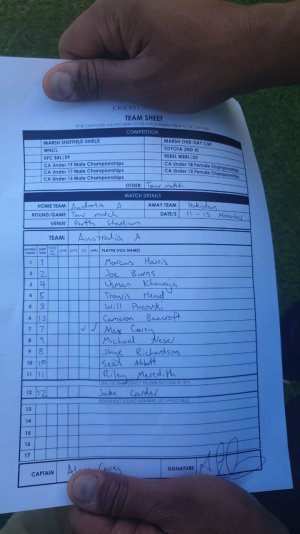 CRICKET
TEAM SHEET
COMPETITION
MARSH SHEFFIELD SHIELD MARSH ONE-DAY CUP
WNCL TOYOTA 2ND XI
KFC BBL|09 REBEL WBBL|05
CA Under 19 Male Championships CA Under 18 Female Championships
CA Under 17 Male Championships CA Under 15 Female Championships
CA Under 15 Male Championships
OTHER Tour match
MATCH DETAILS
HOME TEAM Australia A AWAY TEAM Pakistan
ROUND/GAME Tour match DATE/S 11 - 13 November
VENUE Perth Stadium
TEAM: Australia A
PLAYER (FULL NAME)
1 1 Marcus Harris
2 2 Joe Burns
3 4 Usman Khawaja
4 5 Travis Head
5 3 Will Pucovski
6 13 Cameron Bancroft
7 7 ✓ ✓ Alex Carey
8 9 Michael Neser
9 8 Jhye Richardson
10 10 Sean Abbott
11 11 Riley Meredith
12 12 Jake Carder
REMAINING SQUAD MEMBERS (AS APPLICABLE)
13
14
15
16
17
CAPTAIN Alex Carey SIGNATURE